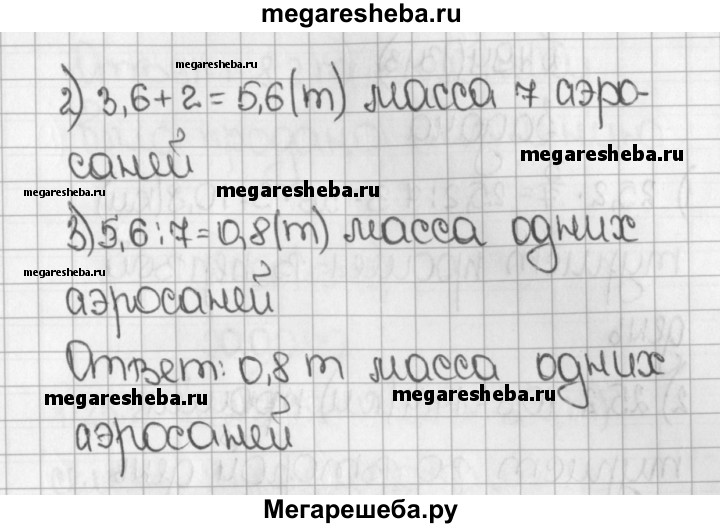 megaresheba.ru
megaresheba.ru
2) 3,6+2=5,6(т) масса 7 аэро-
саней
megaresheba.ru
megaresheba.ru
megaresheba.ru
3) 5,6:7=0,8(т) масса одних
megaresheba.ru
аэросаней
Ответ: 0,8 т масса одних
megaresheba.ru
megaresheba.ru
аэросаней
Мегарешеба.ру